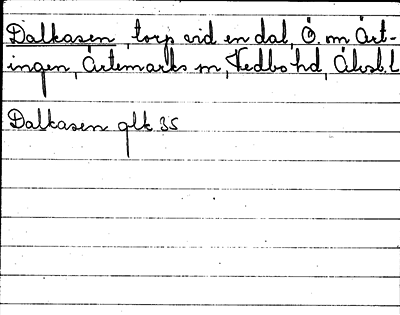 Dalkasen, torp vid en dal, Ö. om Ärt-
ingen, Ärtemarks sn, Vedbo hd, Älvsb. L
Dalkasen glk 35